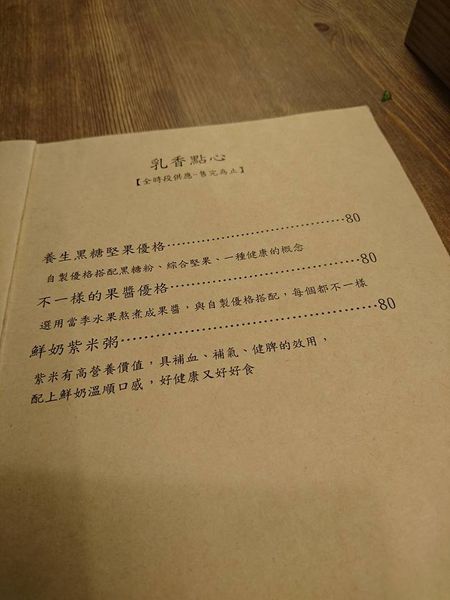 乳香點心
【全時段供應-售完為止】
養生黑糖堅果優格⋯⋯⋯⋯⋯⋯⋯⋯80
自製優格搭配黑糖粉、綜合堅果、一種健康的概念
不一樣的果醬優格⋯⋯⋯⋯⋯⋯⋯⋯80
選用當季水果熬煮成果醬，與自製優格搭配，每個都不一樣
鮮奶紫米粥⋯⋯⋯⋯⋯⋯⋯⋯⋯⋯80
紫米有高營養價值，具補血、補氣、健脾的效用，
配上鮮奶溫順口感，好健康又好好食